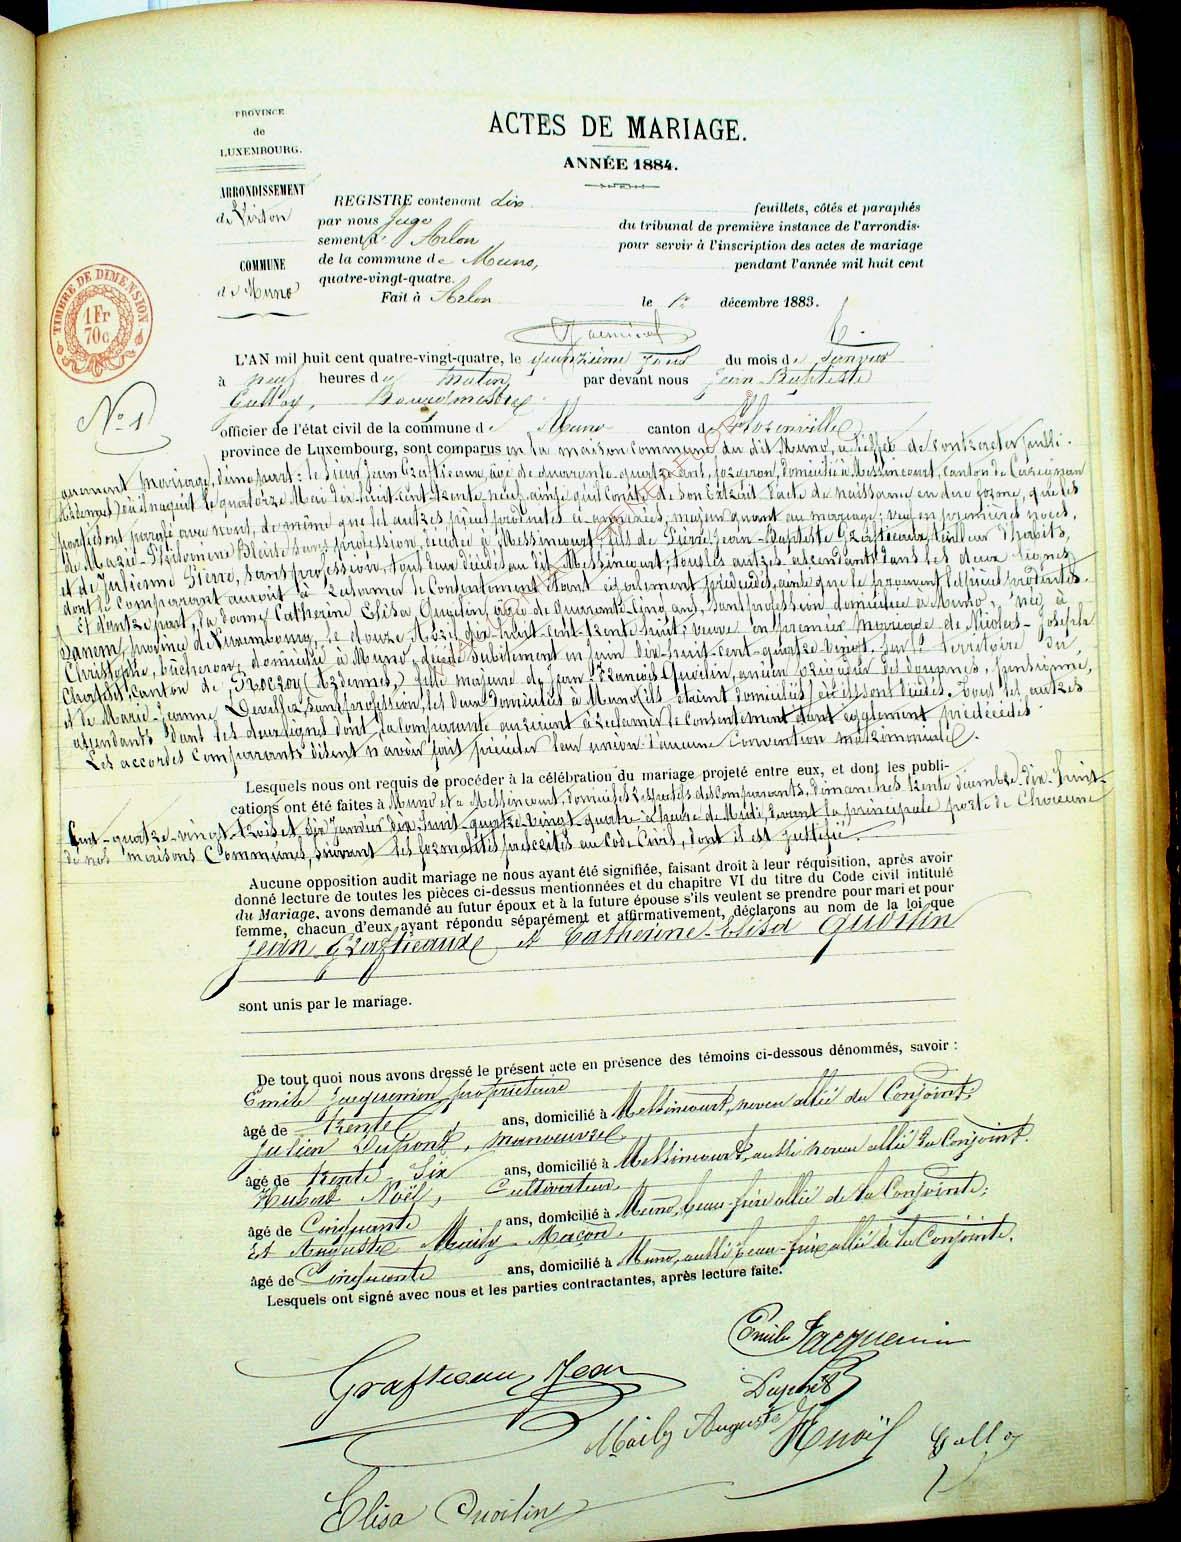 PROVINCE
de
LUXEMBOURG.
ARRONDISSEMENT
de Virton
COMMUNE
de Muno
TIMBRE DE DIMENSION
1 Fr
70c
ACTES DE MARIAGE.
ANNÉE 1884.
REGISTRE contenant dix feuillets, côtés et paraphés
par nous Juge du tribunal de première instance de l'arrondis-
sement d' Arlon pour servir à l'inscription des actes de mariage
de la commune de Muno, pendant l'année mil huit cent
quatre-vingt-quatre.
Fait à Arlon le 1er décembre 1883.
No 1
L'AN mil huit cent quatre-vingt-quatre, le quinzième jour du mois de Janvier
à neuf heures du matin par devant nous Jean-Baptiste
Galloy, Bourgmestre
officier de l'état civil de la commune de Muno canton de Florenville
province de Luxembourg, sont comparus en la maison commune du dit Muno, à l'effet de contracter
mariage, d'une part: le sieur Jean Grafteaux, âgé de quarante-quatre ans, forgeron, domicilié à Messincourt, Canton de Carignan
(Ardennes) où il naquit le quatorze Mai dix-huit-cent-trente neuf, ainsi qu'il conste de son Extrait d'acte de naissance en due forme, que les
parties ont paraphé avec nous, de même que les autres pièces produites ci-annexées; majeur quant au mariage; veuf en premières noces,
de Marie-Philomène sans profession, décédée à Messincourt, fils de Pierre-Jean-Baptiste Grafteaux, tailleur d'habits,
et de Julienne Pierre, sans profession, tous deux décédés au dit Messincourt; tous les autres ascendants dans les deux lignes
dont le comparant aurait à réclamer le Consentement étant également prédécédés, ainsi que le prouvent les pièces produites.
Et d'autre part, la dame Catherine Elisa Quoilin, âgée de quarante cinq ans, sans profession domiciliée à Muno, née à
Sanem, province de Luxembourg, le douze dix-huit-cent-trente huit; veuve en premier mariage de Nicolas-Joseph
Christophe, bûcheron, domicilié à Muno, décédé subitement en juin dix-huit-cent-quatre vingt, sur le territoire du
Canton de Rocroy (Ardennes,) fille majeure de Jean-François Quoilin, ancien préposé des douanes, pensionné,
et de Marie-Jeanne Devillez, sans profession, les deux domiciliés à Muno où ils étaient domiciliés et sont décédés. Tous les autres
ascendants dans les deux lignes dont la comparante auraient à réclamer le Consentement étant également prédécédés.
Les accordés comparants disent n'avoir fait précéder leur union d'aucune Convention matrimoniale.
Lesquels nous ont requis de procéder à la célébration du mariage projeté entre eux, et dont les publi-
cations ont été faites à Muno et à Messincourt, domiciles respectifs des Comparants, dimanches trente décembre dix-huit-
Cent-quatre-vingt-trois et six Janvier dix-huit-quatre-vingt-quatre à heure de Midi, devant la principale porte de Chacune
de nos maisons Communes, suivant les formalités prescrites au Code Civil, dont il est justifié.
Aucune opposition audit mariage ne nous ayant été signifiée, faisant droit à leur réquisition, après avoir
donné lecture de toutes les pièces ci-dessus mentionnées et du chapitre VI du titre du Code civil intitulé
du Mariage, avons demandé au futur époux et à la future épouse s'ils veulent se prendre pour mari et pour
femme, chacun d'eux ayant répondu séparément et affirmativement, déclarons au nom de la loi que
Jean Grafteaux et Catherine-Elisa Quoilin
sont unis par le mariage.
De tout quoi nous avons dressé le présent acte en présence des témoins ci-dessous dénommés, savoir :
Emile Jacquemin, propriétaire
âgé de trente ans, domicilié à Messincourt, neveu allié du Conjoint,
Julien Dupont, manœuvre
âgé de trente Six ans, domicilié à Messincourt, aussi neveu allié du Conjoint.
Hubert Noël, Cultivateur
âgé de Cinquante ans, domicilié à Muno, beau-frère allié de la Conjointe;
Et Auguste Maily Maçon,
âgé de Cinquante ans, domicilié à Muno, aussi beau-frère allié de la Conjointe.
Lesquels ont signé avec nous et les parties contractantes, après lecture faite.
Emile Jacquemin
Grafteaux Jean
Maily Auguste
H Noël
Galloy
Elisa Quoilin